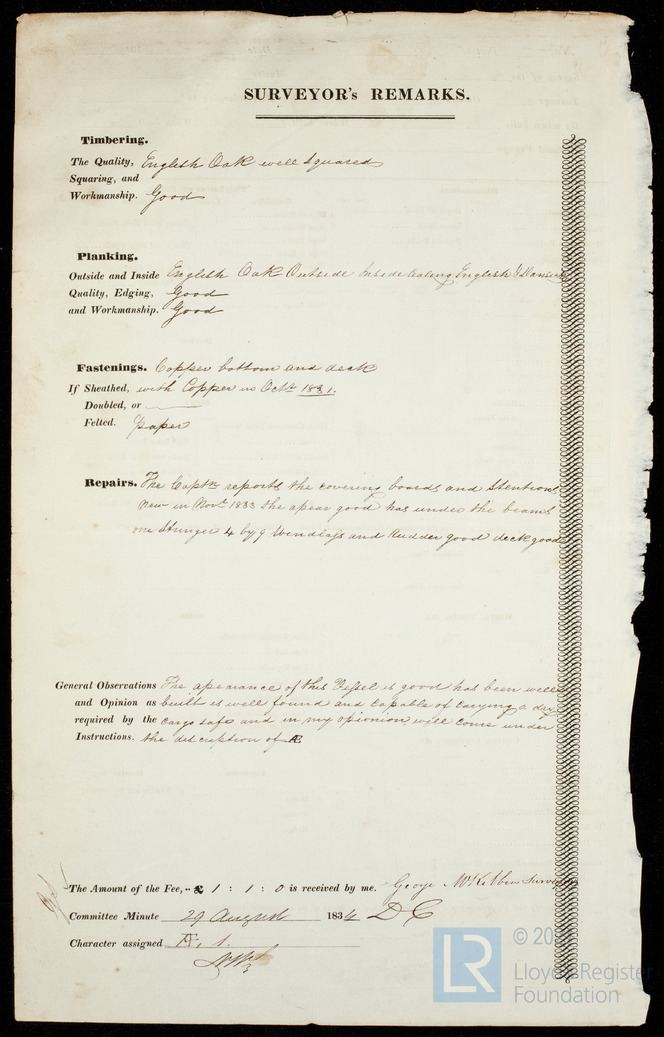 SURVEYOR's REMARKS.
Timbering.
The Quality, English Oak well squared
Squaring, and
Workmanship. Good
Planking.
Outside and Inside English Oak Outside Inside English &
Quality, Edging, Good
and Workmanship. Good
Fastenings. Copper bottom and deck
If Sheathed, with Copper in Octr 1831.
Doubled, or
Felted. paper
Repairs. The Captn reports the covering boards and Stentions
New in Novr 1833 the apear good has under the beams
one Stringer 4 by 9 Wendlass and Rudder good deck good
General Observations The apearance of this Vessel is good has been well
and Opinion as built is well found and capable of carying a dry
required by the cargo safe and in my opionion will come under
Instructions. the description of Æ
The Amount of the Fee, .. £ 1 : 1 : 0 is received by me. George McKibbin Surveyor
Committee Minute 29 August 1834 DC
Character assigned Æ, 1.
LR
© 20
Lloyd's Register
Foundation